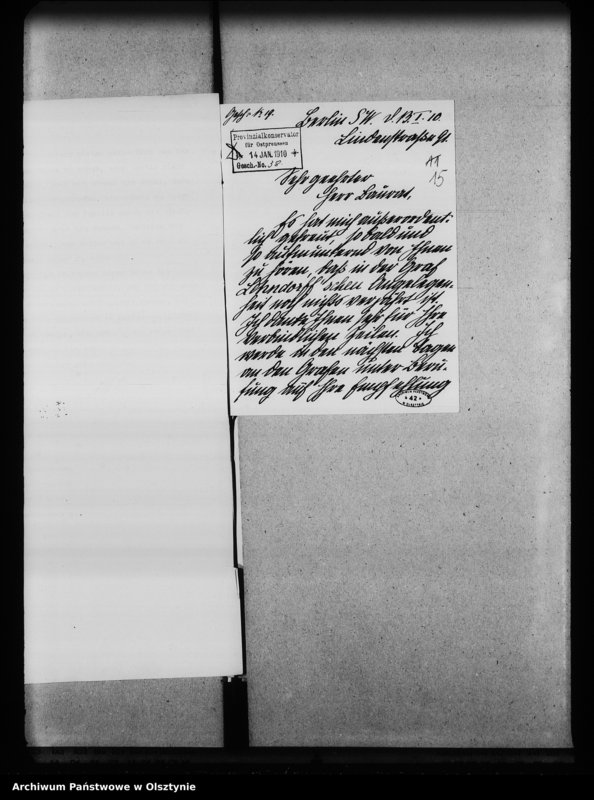 Berlin SW. d. 13.I.10.
Lindenstraße
Provinzialkonservator
für Ostpreussen
14 JAN. 1910
Gesch.-No. 58
15
Sehr geehrter
Herr Baurat,
Es hat mich außerordent-
lich gefreut, so bald und
so aufmunternd von Ihnen
zu hören, daß in der Graf
Lehndorff'schen Angelegen-
heit noch nichts verfehlt ist.
Ich danke Ihnen sehr für Ihre
verbindlichen Zeilen. Ich
werde in den nächsten Tagen
an den Grafen unter Beru-
fung auf Ihre Empfehlung
42
Archiwum Państwowe w Olsztynie